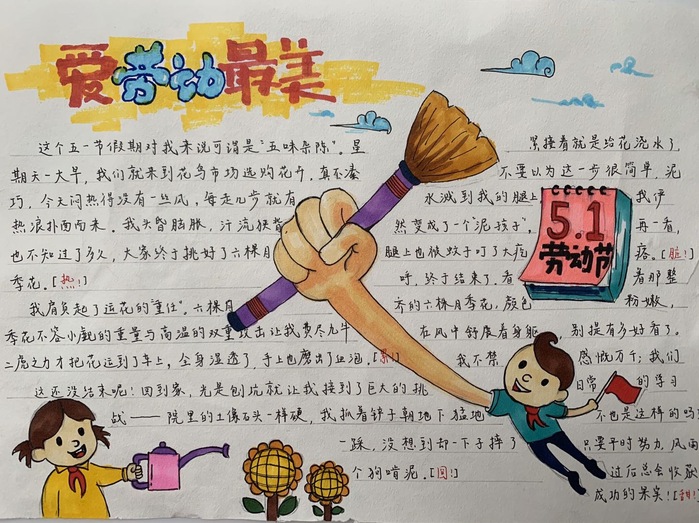 爱劳动最美
这个五一节假期对我来说可谓是"五味杂陈"。星
期天一大早，我们就来到花鸟市场选购花卉，真不凑
巧，今天闷热得没有一丝风，每走几步就有
热浪扑面而来。我头昏脑胀，汗流狭背
也不知过了多久，大家终于挑好了六棵月
季花。[热!]
我肩负起了运花的"重任"。六棵月
季花不容小觑的重量与高温的双重攻击让我费尽九牛
二虎之力才把花运到了车上，全身湿透了，手上也磨出了血泡。[累!]
这还没结束呢！回到家，光是刨坑就让我接到了巨大的挑
战——院里的土像石头一样硬，我抓着铲子朝地下猛地
一踩，没想到却一下子摔了
个狗啃泥。[囧!]
累接着就是给花浇水了，
不要以为这一步很简单，泥
水溅到我的腿上 我俨
然变成了一个"泥孩子"。再一看，
腿上也被蚊子叮了大疙 瘩。[脏!]
呼，终于结束了，看 着那整
齐的六棵月季花，颜色 粉嫩，
在风中舒展着身躯，别提有多好看了。
我不禁 感慨万千；我们
日常 的学习
不也是这样的吗
只要平时努力，风雨
过后总会收获
成功的果实！[甜!]
5.1
劳动节